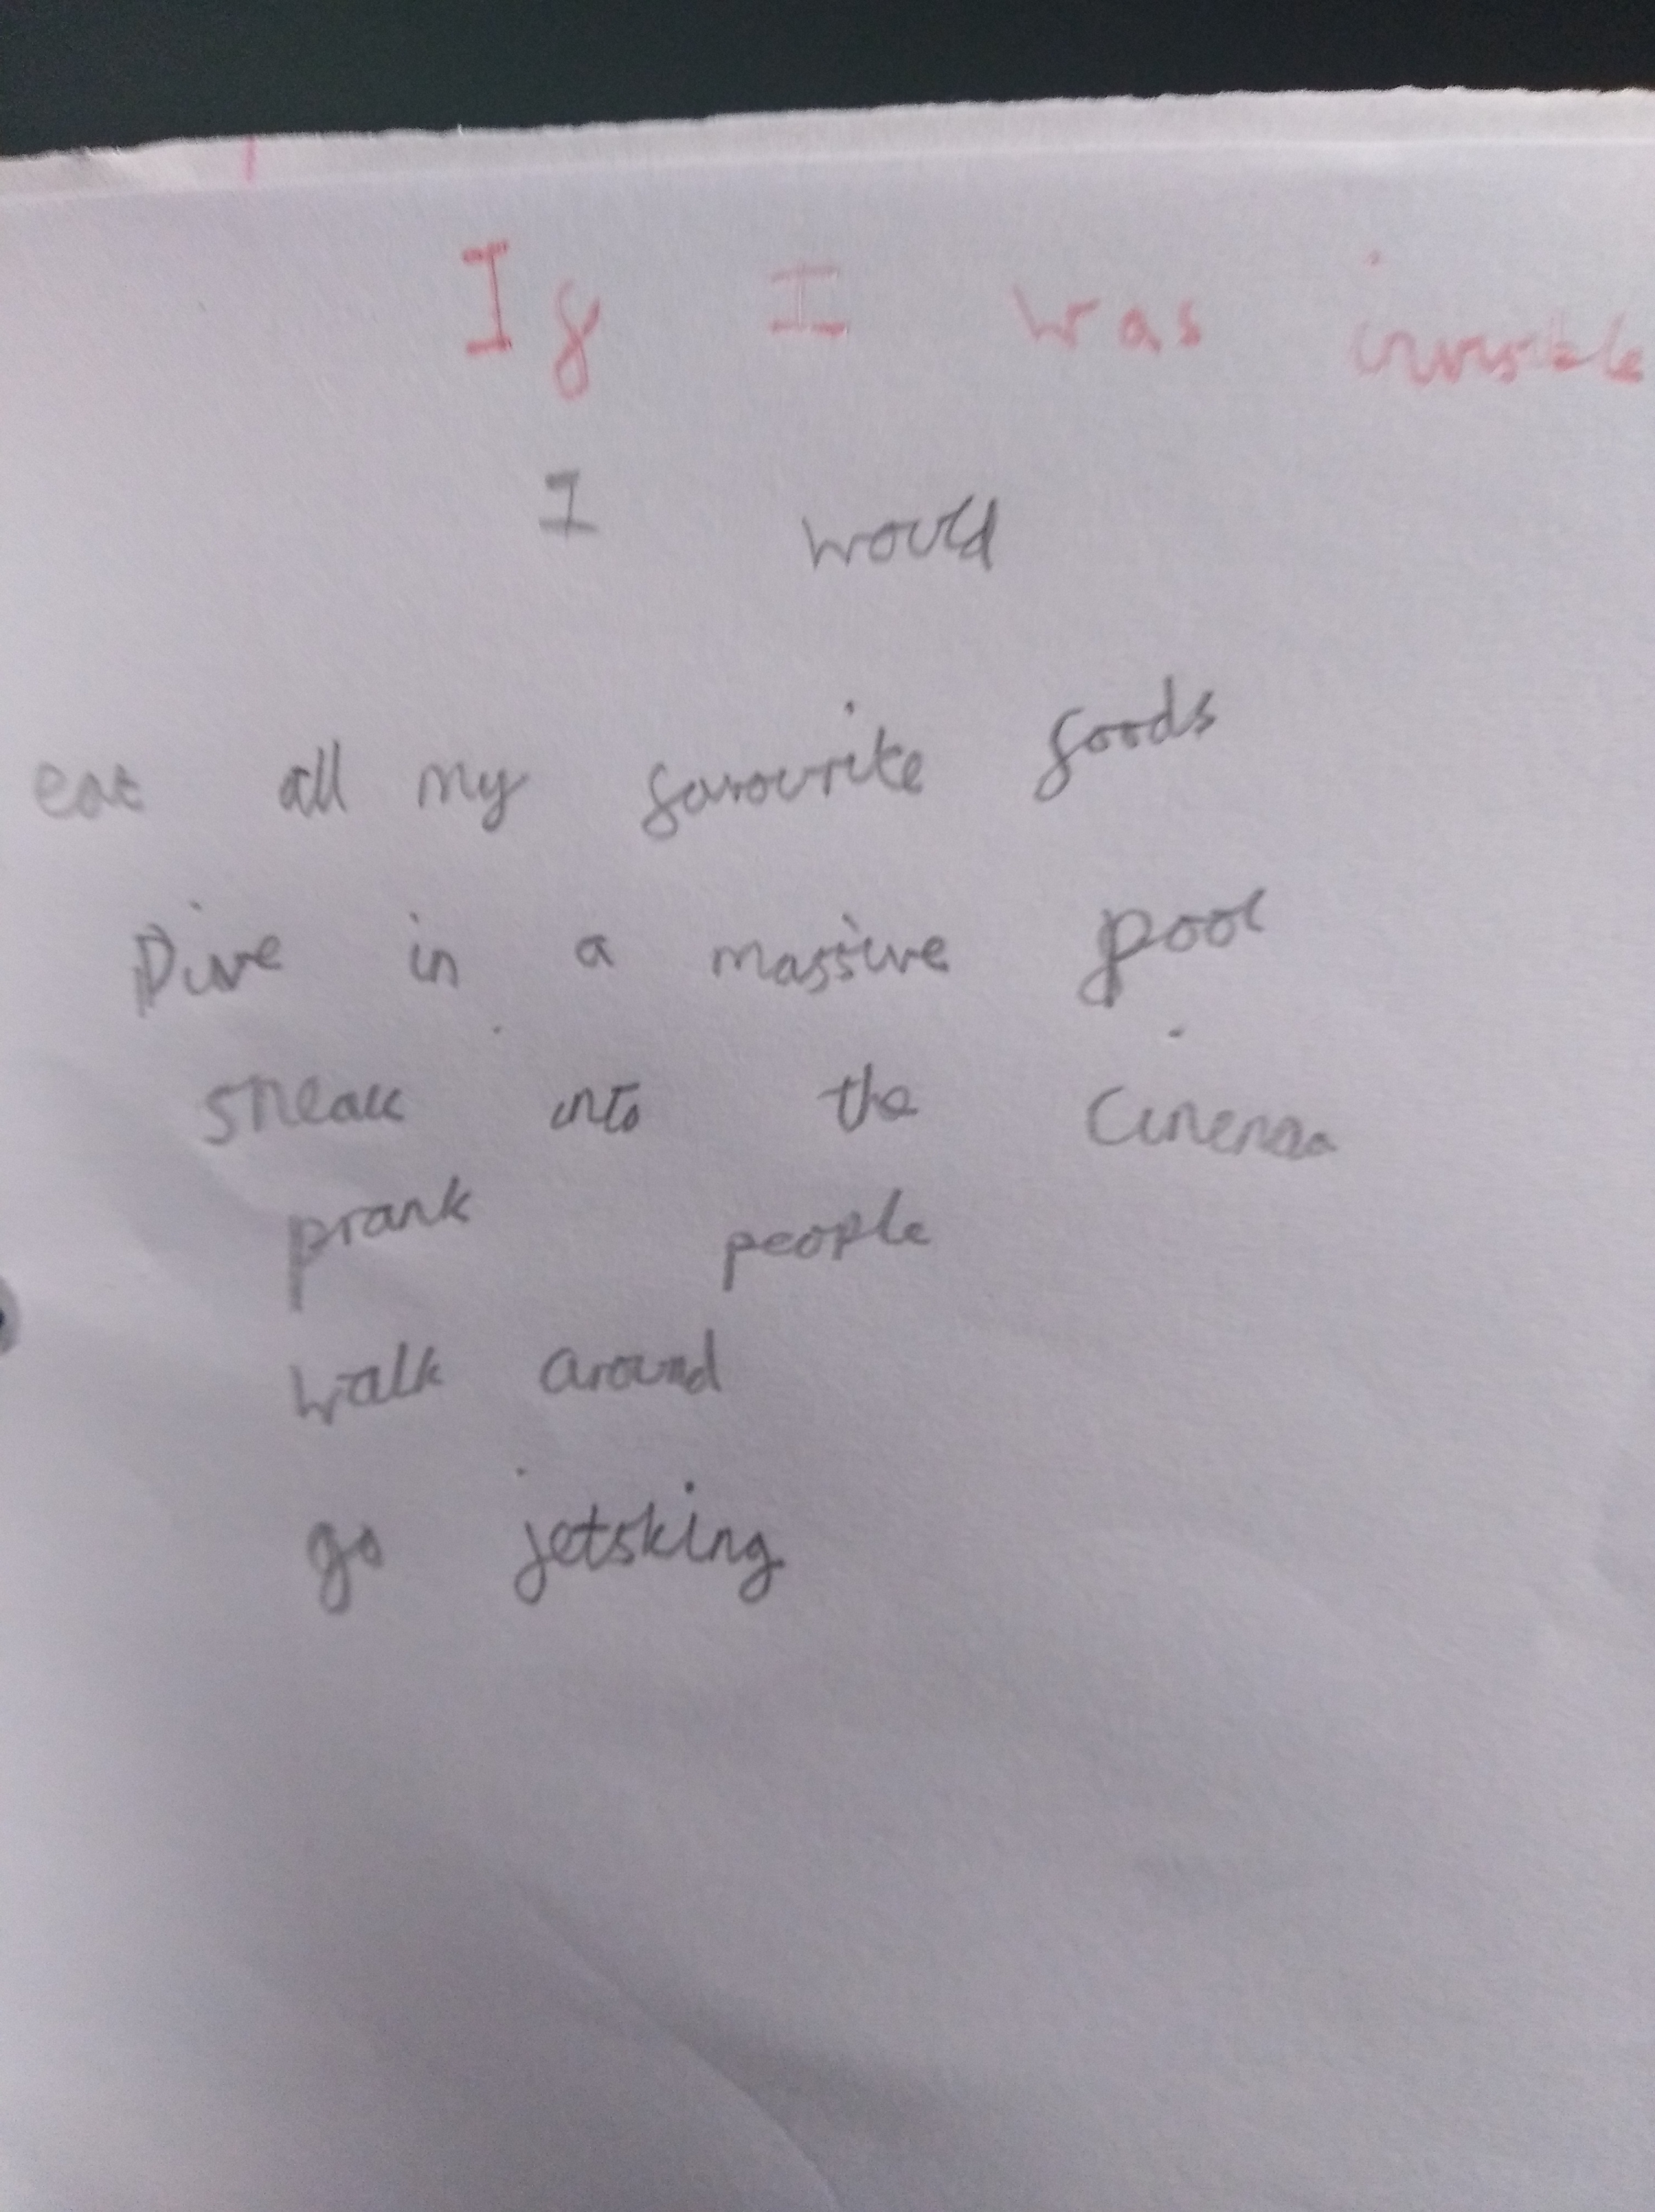 If I was invisible
I would
eat all my favourite foods
Dive in a massive pool
sneak into the Cinema
prank people
walk around
go jetsking